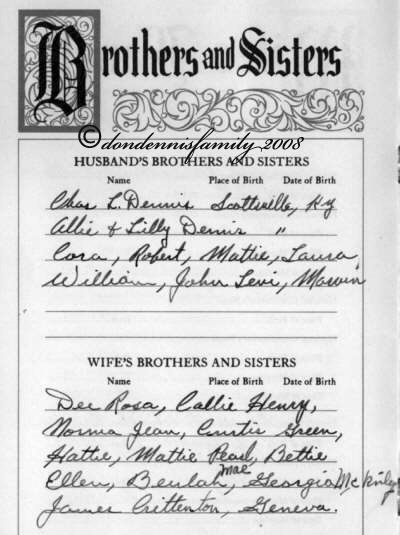 Brothers and Sisters
© dondennisfamily 2008
HUSBAND'S BROTHERS AND SISTERS
Name Place of Birth Date of Birth
Chas L. Dennis Scottsville, Ky
Allie & Lilly Dennis "
Cora, Robert, Mattie, Laura,
William, John Levi, Marvin
WIFE'S BROTHERS AND SISTERS
Name Place of Birth Date of Birth
Dee Rosa, Callie Henry,
Norma Jean, Curtis Green,
Hattie, Mattie Pearl, Bettie
Ellen, Beulah Mae, Georgia McKinley
James Crittenton, Geneva.